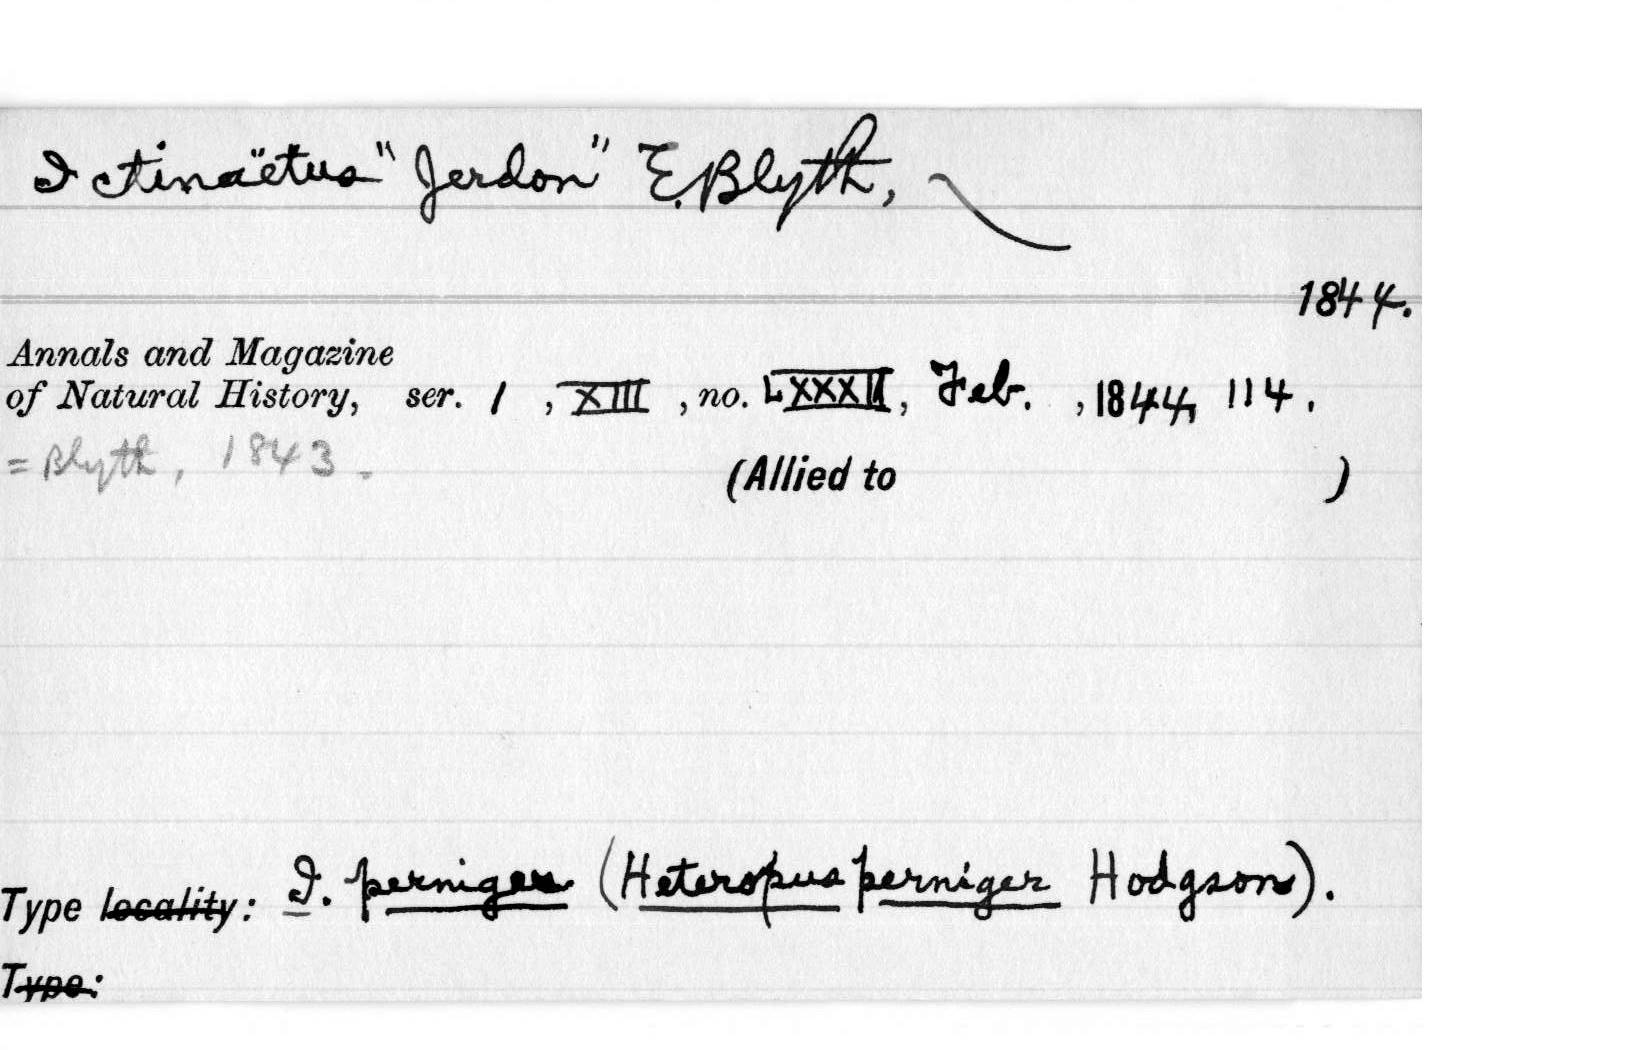 Ictinaëtus "Jerdon" E. Blyth,
1844.
Annals and Magazine
of Natural History, ser. 1, XIII, no. LXXXII, Feb., 1844, 114.
=Blyth, 1843.
(Allied to )
Type locality: I. perniger (Heteropus perniger Hodgson).
Type: